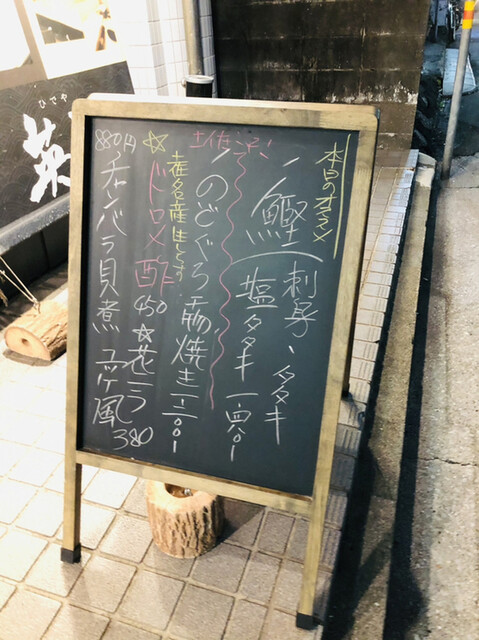 本日のオススメ
鰹 刺身、タタキ
塩タタキ 一、四八〇ー
土佐沖
のどぐろ干物焼き 一、二〇〇ー
土佐名産生しらす
☆ドロメ酢 450
☆花ニラ 380
チャンバラ貝煮
880円
ひでや